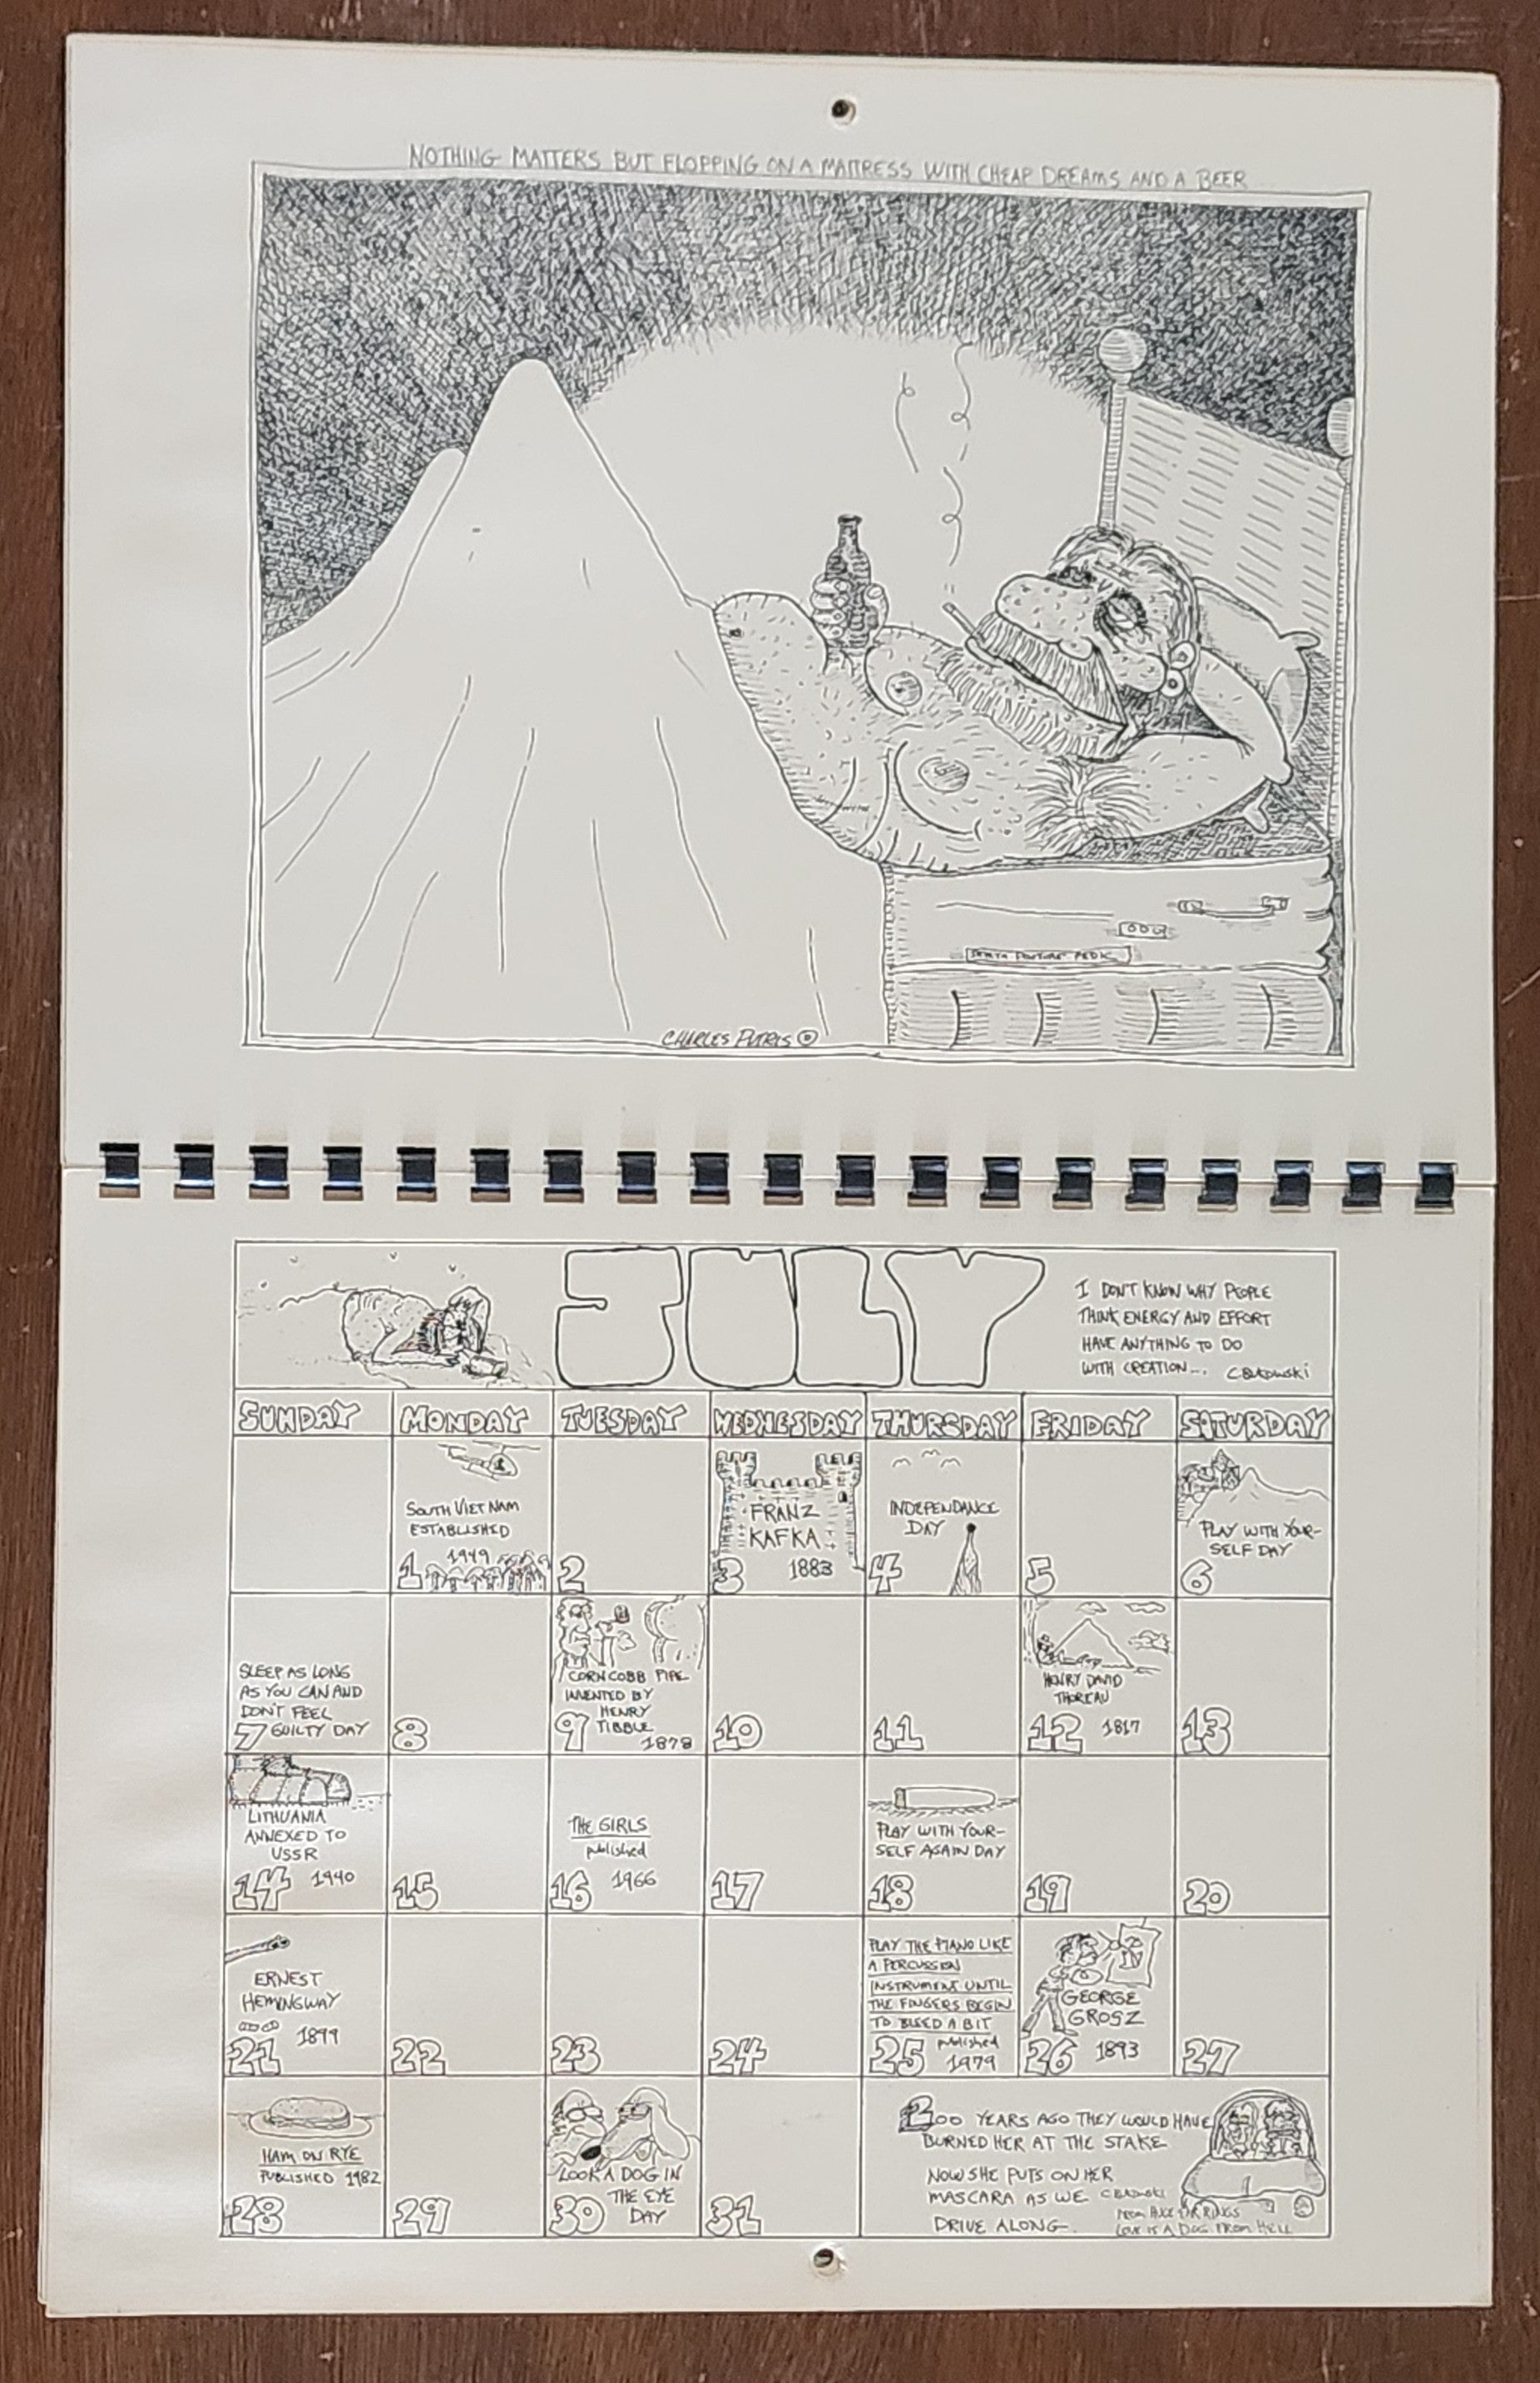 NOTHING MATTERS BUT FLOPPING ON A MATTRESS WITH CHEAP DREAMS AND A BEER
POSTURE PEDIC
CHARLES PUTRIS ©
JULY
I DON'T KNOW WHY PEOPLE
THINK ENERGY AND EFFORT
HAVE ANYTHING TO DO
WITH CREATION... C Bukowski
SUNDAY MONDAY TUESDAY WEDNESDAY THURSDAY FRIDAY SATURDAY
SOUTH VIET NAM
ESTABLISHED
1949
1
2
FRANZ
KAFKA
3 1883
INDEPENDANCE
DAY
4
5
PLAY WITH YOUR-
SELF DAY
6
SLEEP AS LONG
AS YOU CAN AND
DON'T FEEL
7 GUILTY DAY
8
CORNCOBB PIPE
INVENTED BY
HENRY
9 TIBBLE
1878
10
11
HENRY DAVID
THOREAU
12 1817
13
LITHUANIA
ANNEXED TO
USSR
14 1940
15
THE GIRLS
published
16 1966
17
PLAY WITH YOUR-
SELF AGAIN DAY
18
19
20
ERNEST
HEMINGWAY
21 1899
22
23
24
PLAY THE PIANO LIKE
A PERCUSSION
INSTRUMENT UNTIL
THE FINGERS BEGIN
TO BLEED A BIT
25 published
1979
GEORGE
GROSZ
26 1893
27
HAM ON RYE
PUBLISHED 1982
28
29
LOOK A DOG IN
THE EYE
30 DAY
31
200 YEARS AGO THEY WOULD HAVE
BURNED HER AT THE STAKE
NOW SHE PUTS ON HER
MASCARA AS WE C Bukowski
DRIVE ALONG.
FROM HUGE EAR RINGS
LOVE IS A DOG FROM HELL